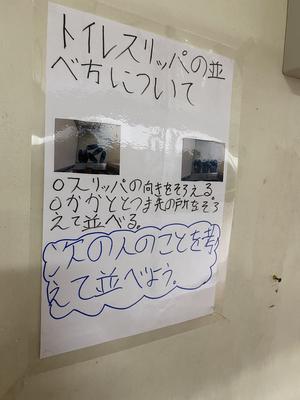 トイレスリッパの並
べ方について
○スリッパの向きをそろえる。
○かかととつま先の所をそろ
えて並べる。
次の人のことを考
えて並べよう。